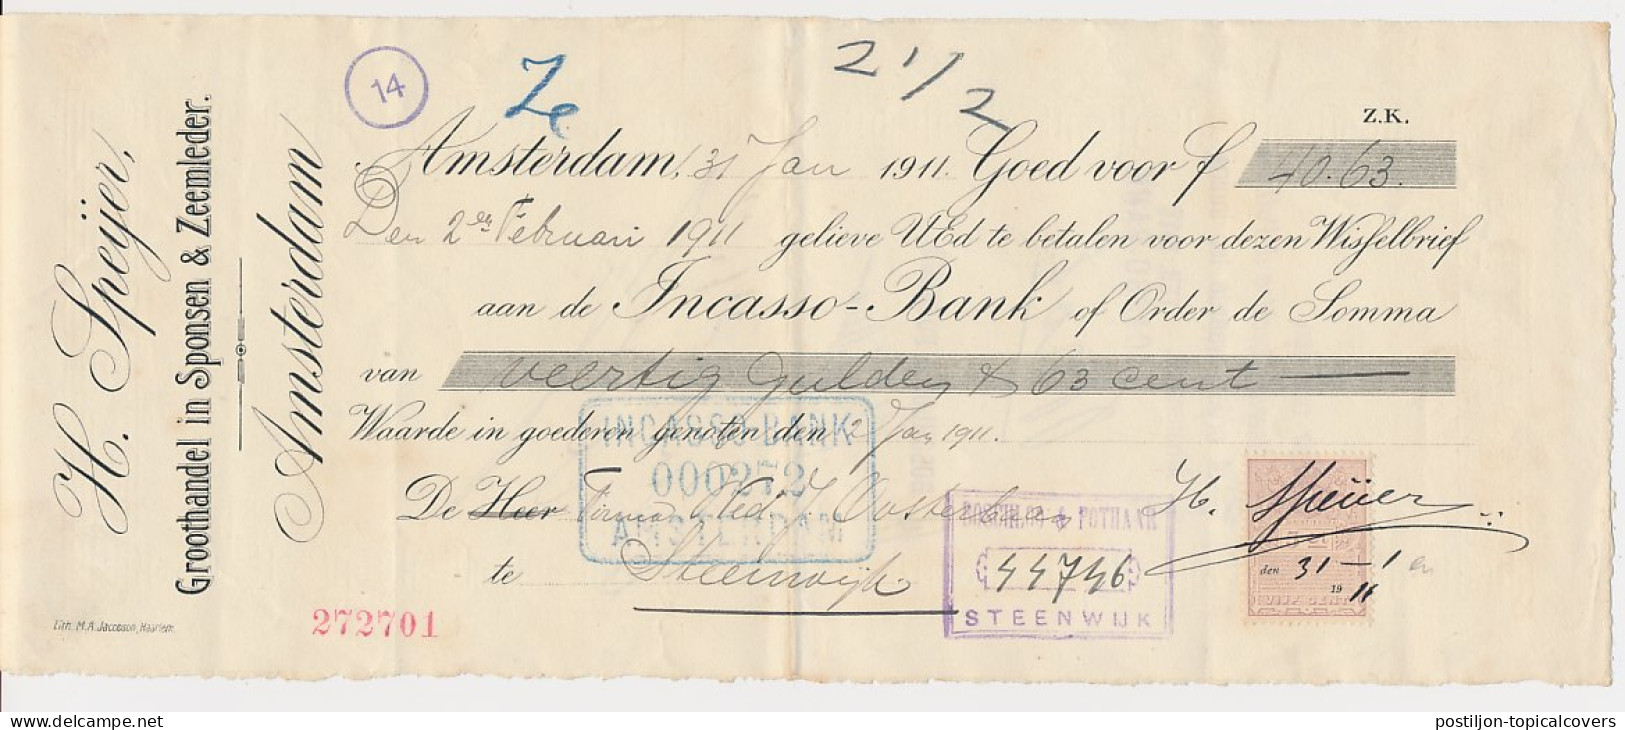 H. Speijer,
Groothandel in Sponsen & Zeemleder.
Amsterdam
Lith. M.A. Jacobson, Haarlem.
14
Ze
21/2
Z.K.
Amsterdam, 31 Jan 1911. Goed voor f 40.63.
Den 2en Februari 1911 gelieve UEd te betalen voor dezen Wisselbrief
aan de Incasso-Bank of Order de Somma
van veertig Gulden & 63 cent
Waarde in goederen genoten den 2 Jan 1911.
INCASSO-BANK
000272
AMSTERDAM
De Heer Firma Wed J Oosterbaan
te Steenwijk
H. Speijer
& POTHAAR
44746
STEENWIJK
den 31-1
1911
272701
postiljon-topicalcovers